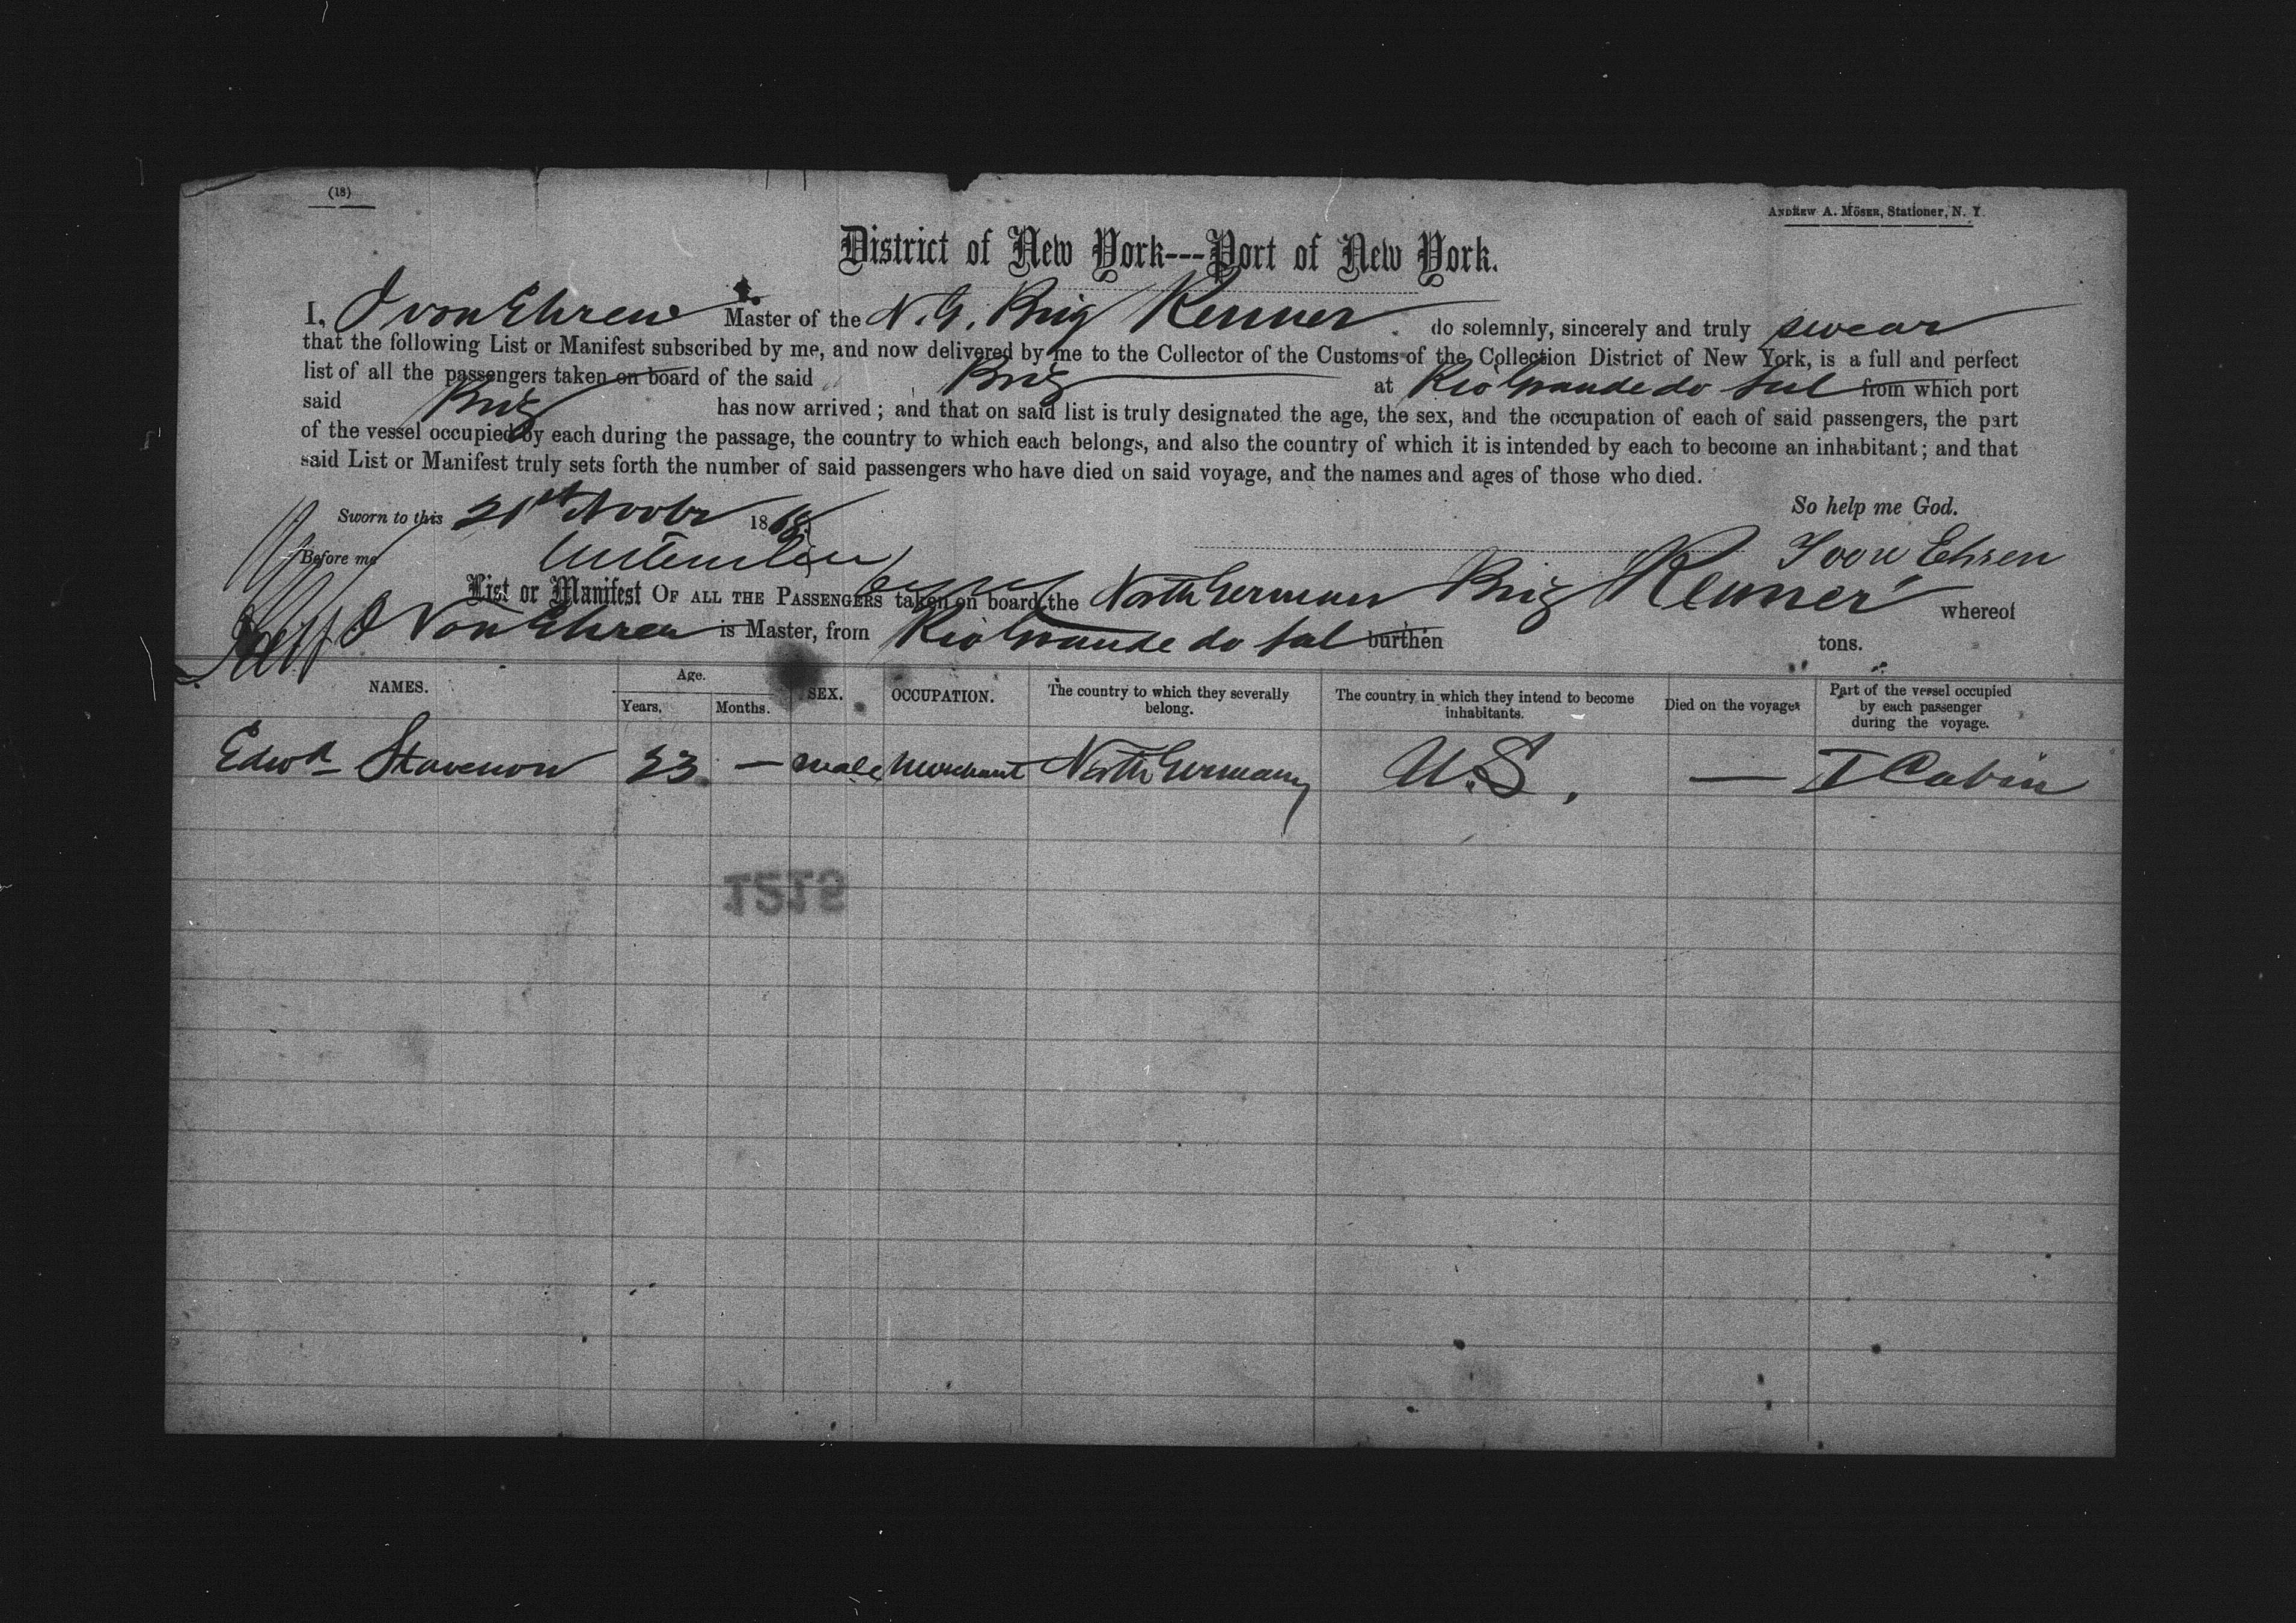 (18)
ANDREW A. MOSER, Stationer, N. Y.
District of New York---Port of New York.
I, J von Ehren Master of the N. G. Brig Renner do solemnly, sincerely and truly swear
that the following List or Manifest subscribed by me, and now delivered by me to the Collector of the Customs of the Collection District of New York, is a full and perfect
list of all the passengers taken on board of the said Brig at Rio Grande do Sul from which port
said Brig has now arrived; and that on said list is truly designated the age, the sex, and the occupation of each of said passengers, the part
of the vessel occupied by each during the passage, the country to which each belongs, and also the country of which it is intended by each to become an inhabitant; and that
said List or Manifest truly sets forth the number of said passengers who have died on said voyage, and the names and ages of those who died.
So help me God.
Sworn to this 21st Novbr 1868
Before me J von Ehren
List or Manifest OF ALL THE PASSENGERS taken on board the North German Brig Renner whereof
J Von Ehren is Master, from Rio Grande do Sul burthen tons.
NAMES. Age. Years. Months. SEX. OCCUPATION. The country to which they severally belong. The country in which they intend to become inhabitants. Died on the voyage. Part of the vessel occupied by each passenger during the voyage.
Edwd Stavenow 23 — male Merchant North Germany U.S. — I Cabin